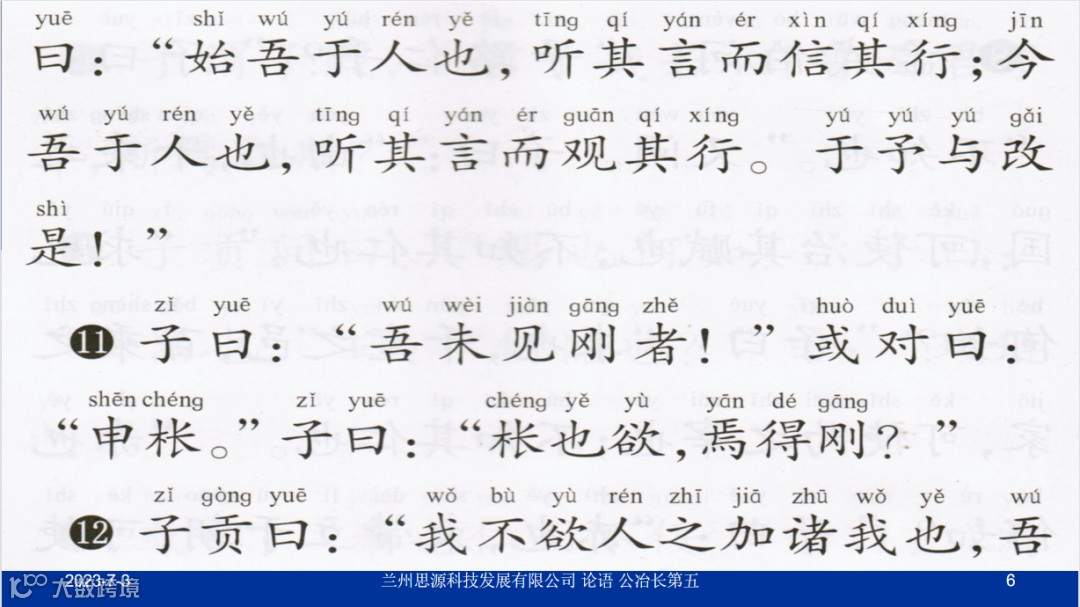 yuē shǐ wú yú rén yě tīng qí yán ér xìn qí xíng jīn
曰：“始吾于人也，听其言而信其行；今
wú yú rén yě tīng qí yán ér guān qí xíng yú yú yǔ gǎi
吾于人也，听其言而观其行。于予与改
shì
是！”
zǐ yuē wú wèi jiàn gāng zhě huò duì yuē
⓫ 子曰：“吾未见刚者！”或对曰：
shēn chéng zǐ yuē chéng yě yù yān dé gāng
“申枨。”子曰：“枨也欲，焉得刚？”
zǐ gòng yuē wǒ bù yù rén zhī jiā zhū wǒ yě wú
⓬ 子贡曰：“我不欲人之加诸我也，吾
2023-7-3 兰州思源科技发展有限公司 论语 公冶长第五 6
大数跨境